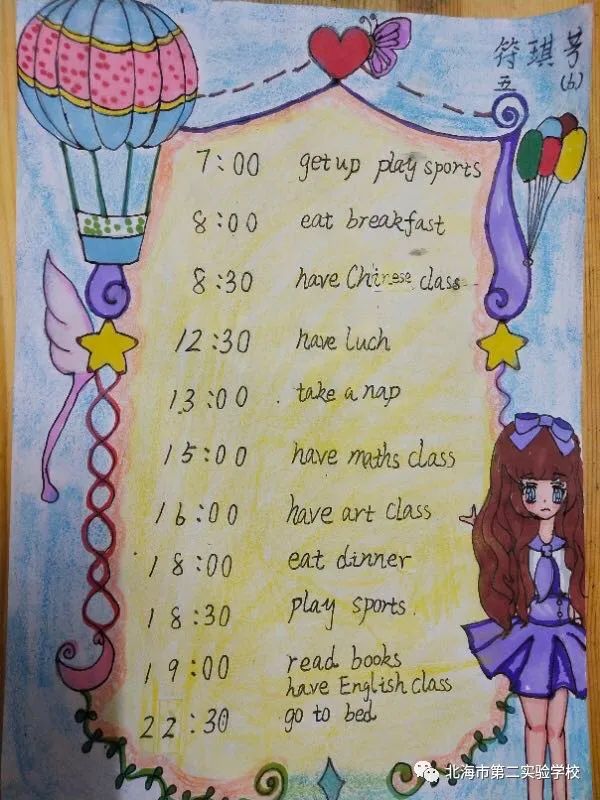 符琪芳
五 (6)
7:00 get up play sports
8:00 eat breakfast
8:30 have Chinese class
12:30 have luch
13:00 take a nap
15:00 have maths class
16:00 have art class
18:00 eat dinner
18:30 play sports.
19:00 read books
have English class
22:30 go to bed
北海市第二实验学校